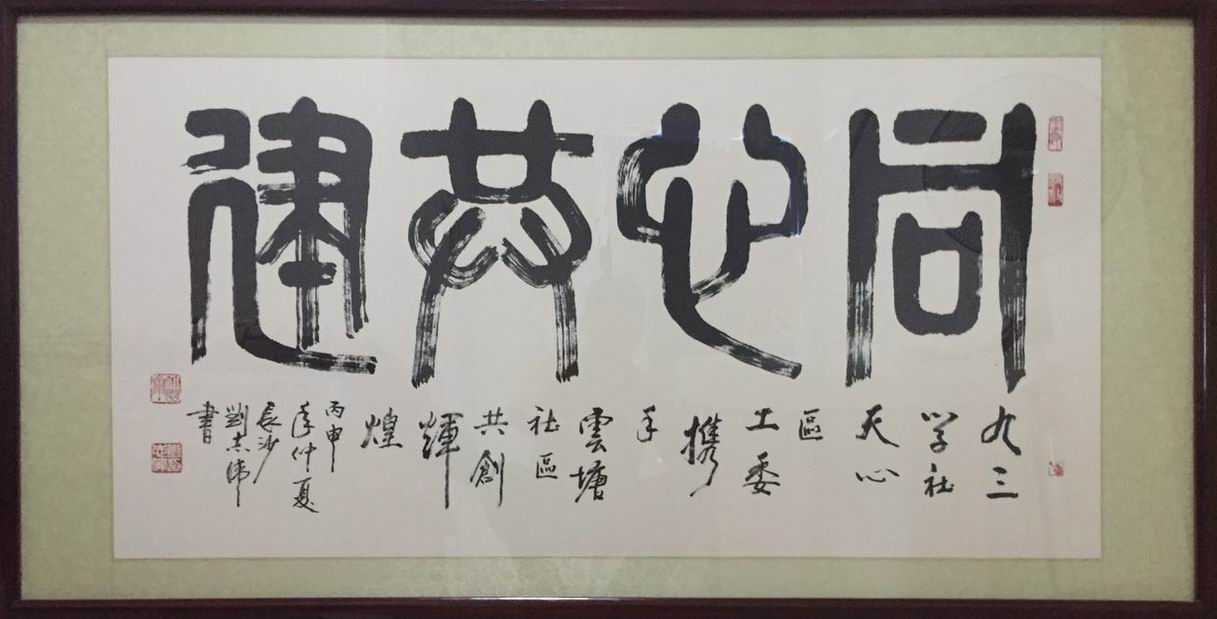 同心共建
九三
学社
天心
區
工委
携
手
雲塘
社區
共創
輝
煌
丙申
年仲夏
長沙
劉志偉
書